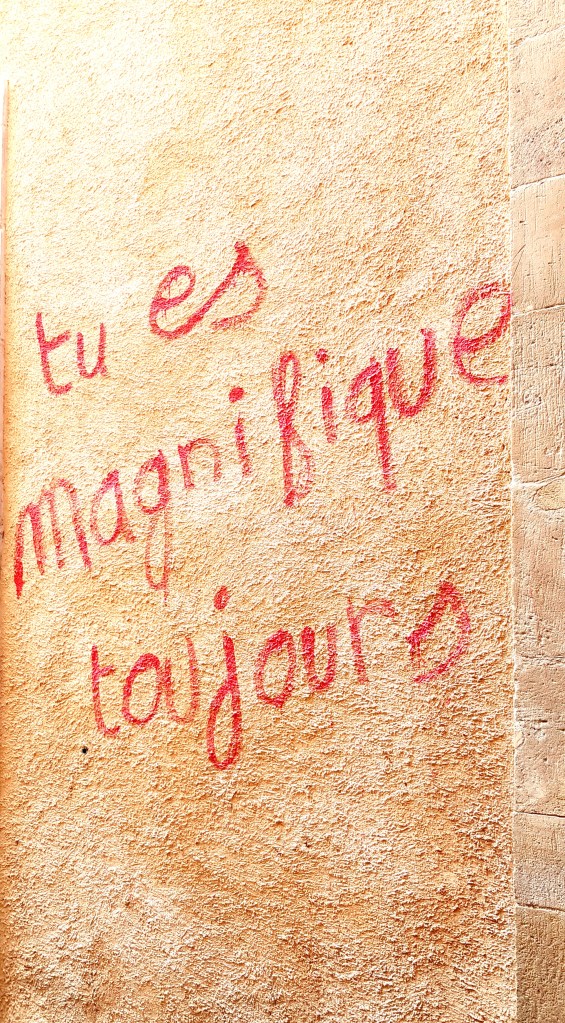 tu es
magnifique
toujours